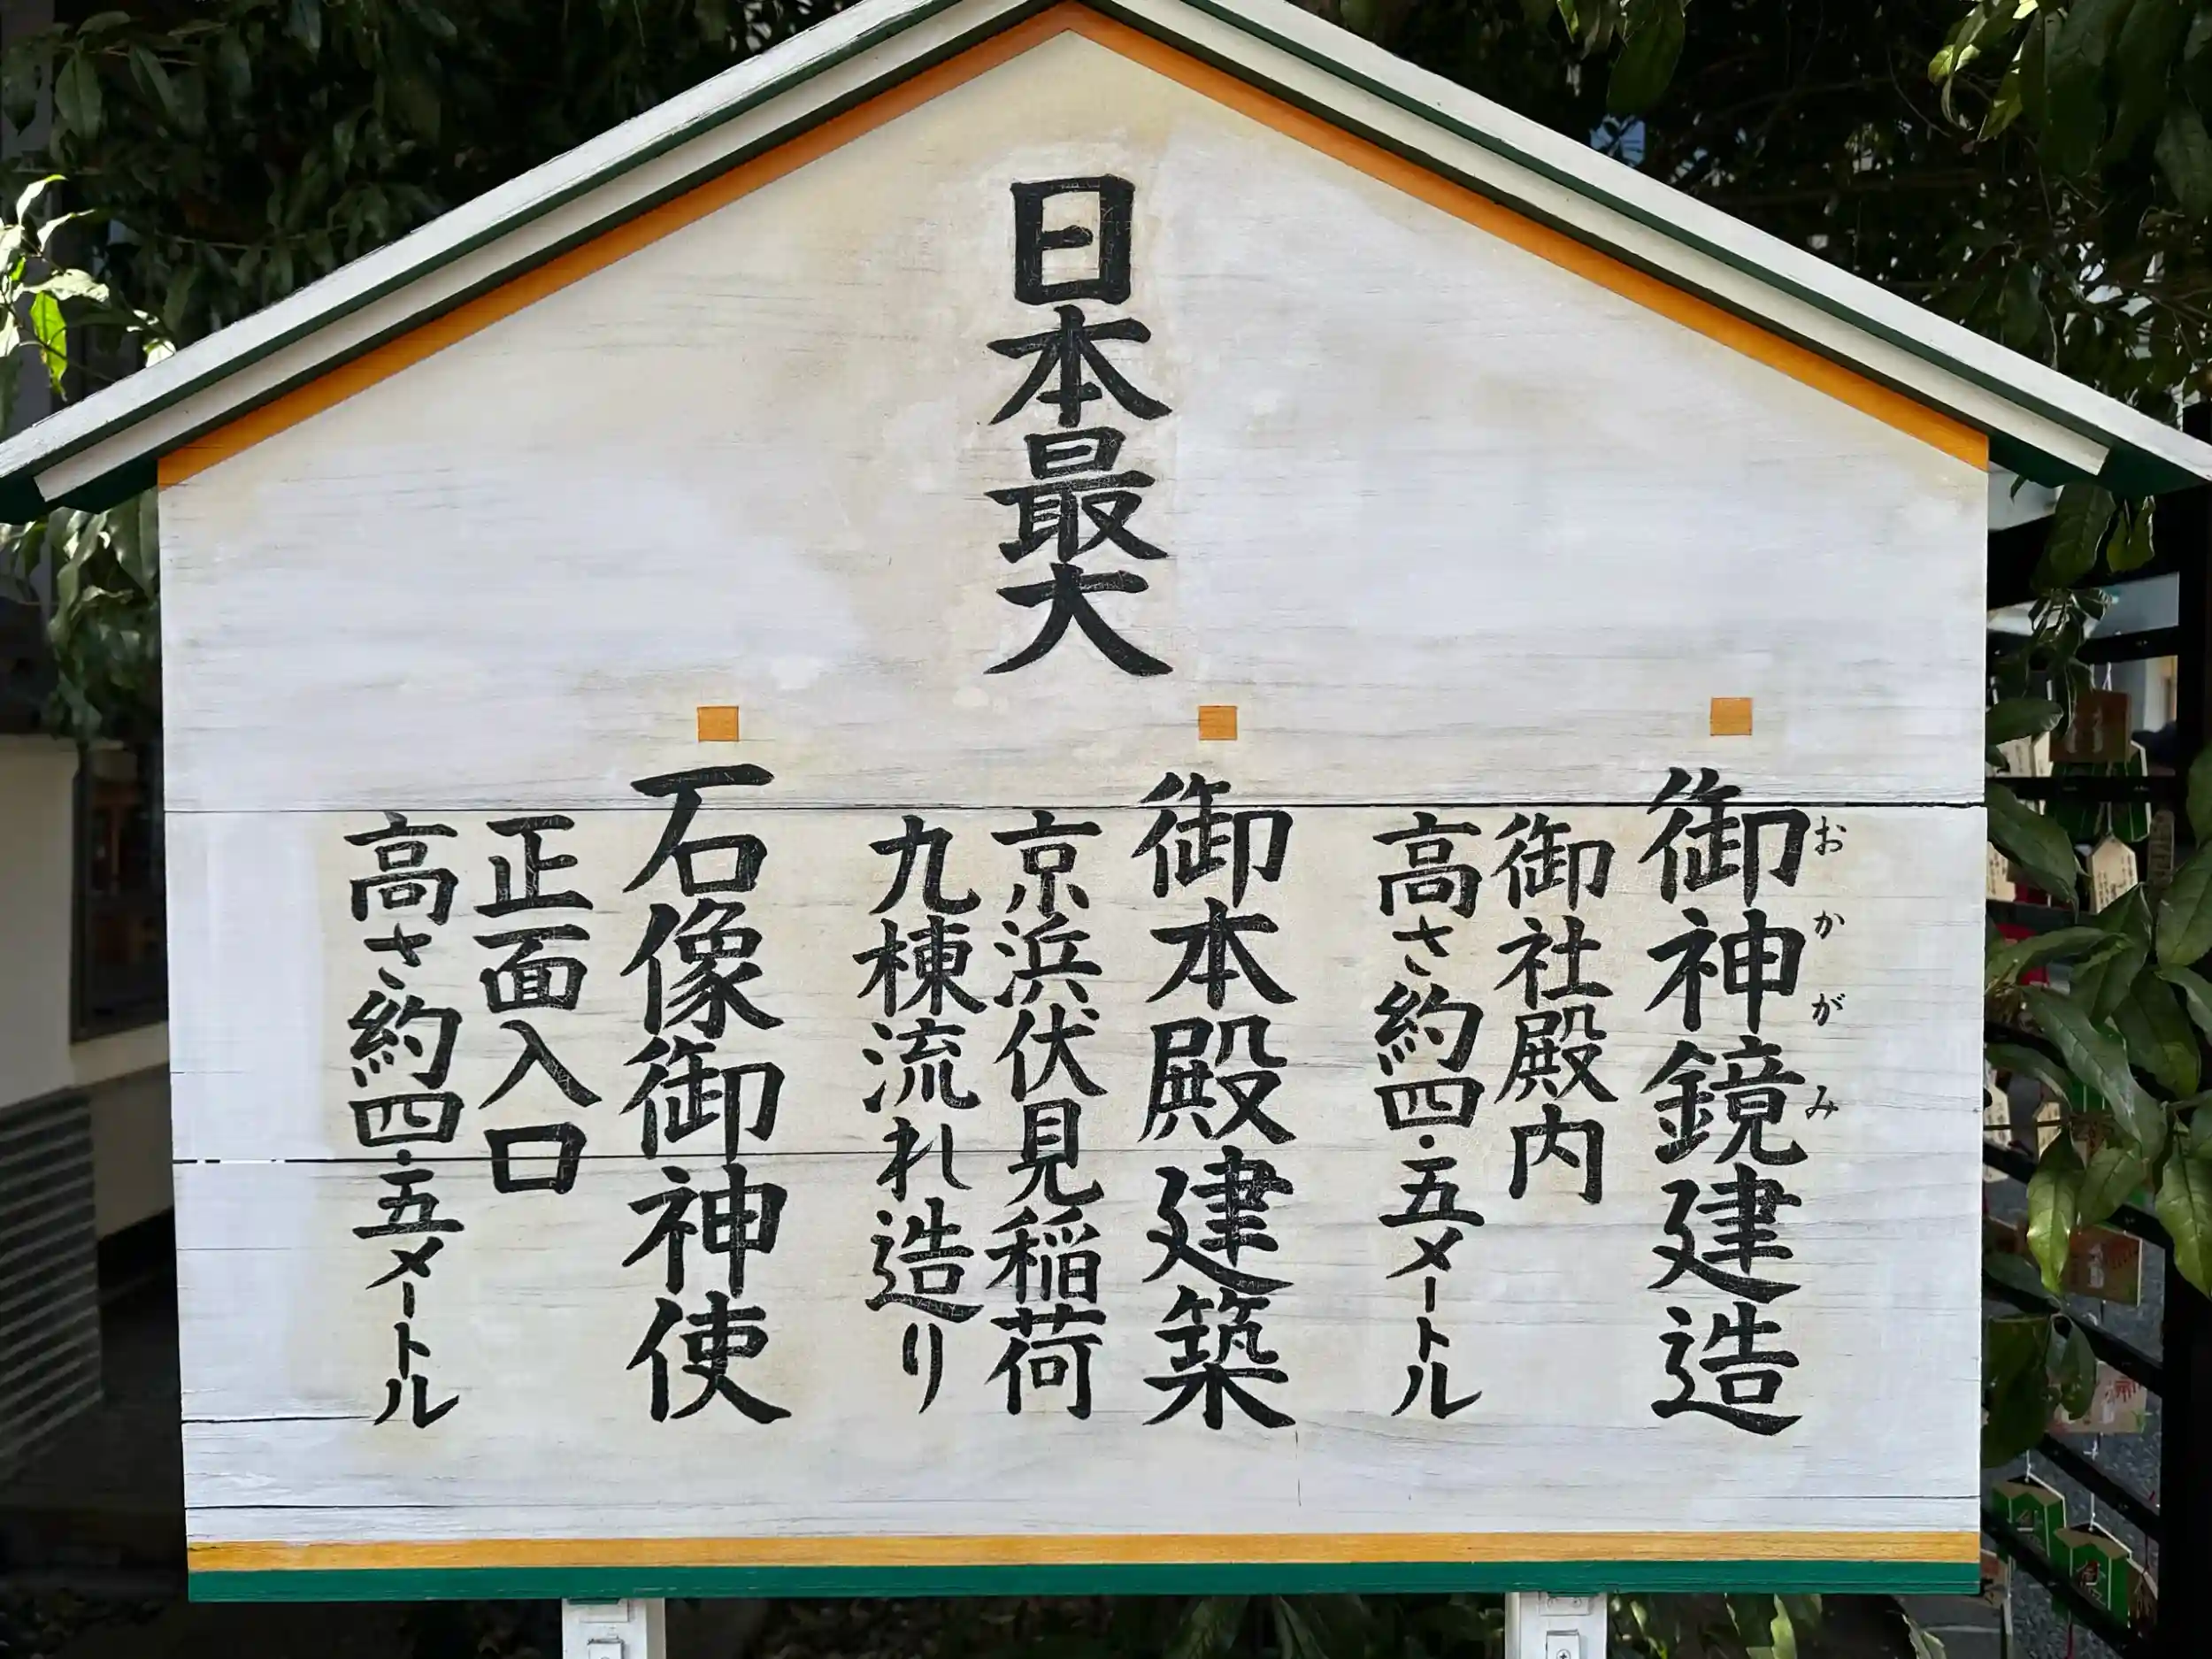 日本最大
御神鏡建造
おかがみ
御社殿内
高さ約四・五メートル
御本殿建築
京浜伏見稲荷
九棟流れ造り
石像御神使
正面入口
高さ約四・五メートル